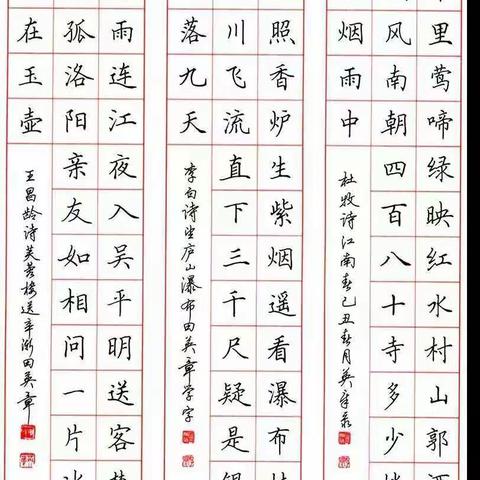 里莺啼绿映红水村山郭酒
风南朝四百八十寺多少楼
烟雨中
杜牧诗江南春己丑春月英章录
照香炉生紫烟遥看瀑布挂
川飞流直下三千尺疑是银
落九天
李白诗望庐山瀑布田英章学字
雨连江夜入吴平明送客楚
孤洛阳亲友如相问一片冰
在玉壶
王昌龄诗芙蓉楼送辛渐田英章